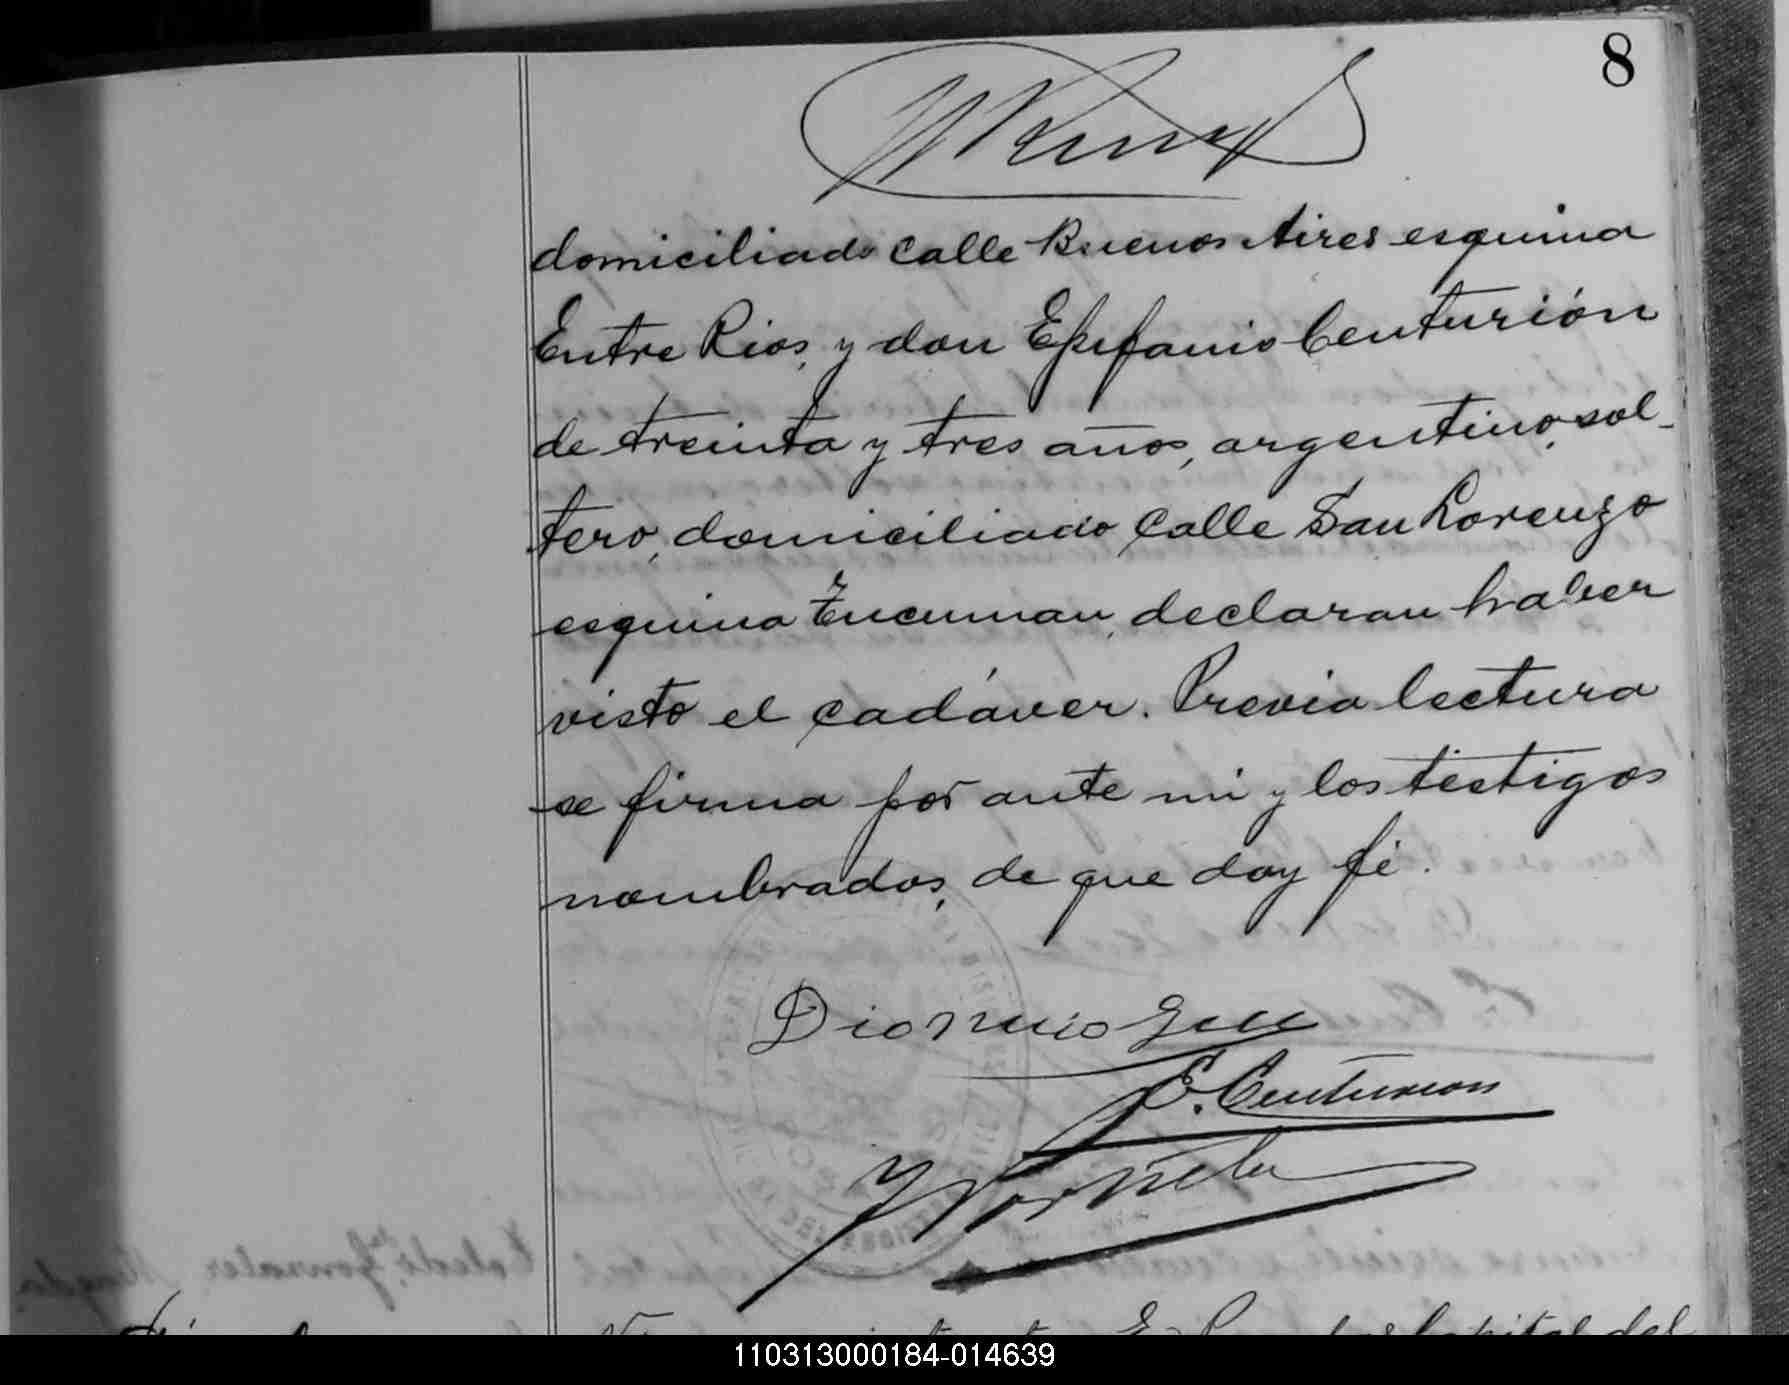 8
domiciliado calle Buenos Aires esquina
Entre Rios, y don Epifanio Centurión
de treinta y tres años, argentino, sol-
tero, domiciliado calle San Lorenzo
esquina Tucuman, declaran haber
visto el cadáver. Previa lectura
se firma por ante mi y los testigos
nombrados, de que doy fé.
Dionicio
E. Centurion
110313000184-014639